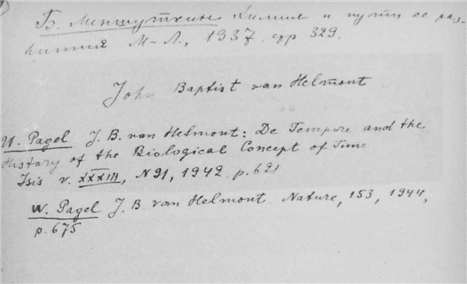 Б. Меншуткин Химия и пути ее раз-
вития М-Л., 1937. стр. 329.
John Baptist van Helmont
W. Pagel J. B. van Helmont: De Tempore and the
History of the Biological Concept of Time
Isis v. XXXIII, N 91, 1942, p. 621
W. Pagel J. B. van Helmont. Nature, 153, 1944,
p. 675